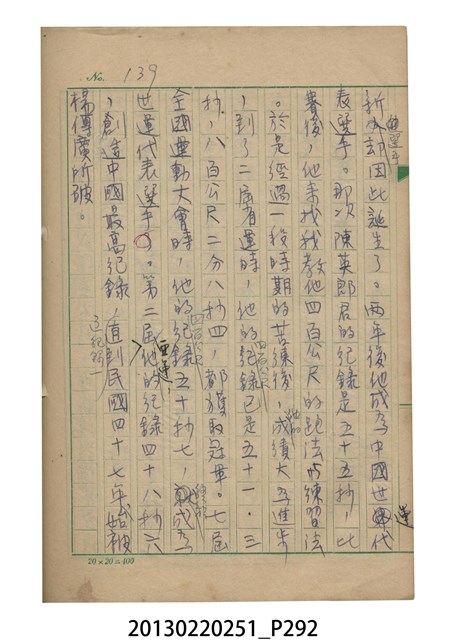 No. 139
新人却因此誕生了。兩年後他成為中國世運代
表選手。那次陳英郎君的紀錄是五十五秒,比
賽後,他來找我教他四百公尺的跑法的練習法
。於是經過一段時期的苦練後,他的成績大為進步
,到了二屆省運時,他的四百公尺紀錄已是五十一.三
秒,八百公尺二分八秒四,都獲取冠軍。七屆
全國運動大會時,他的四百公尺紀錄五十秒七,成為
世運代表選手。第二屆亞運他的紀錄四十八秒六
,創造中國最高紀錄,這紀錄一直到民國四十七年始被
楊傳廣所破。
20×20=400
20130220251_P292